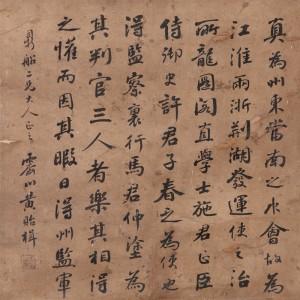 真為州東當南之水會故為
江淮兩浙荆湖發運使之治
所龍圖閣直學士施君正臣
侍御史許君子春之為使也
得監察裏行馬君仲塗為
其判官三人者樂其相得
之懽而因其暇日得州監軍
船二兄大人正之 霽川黃貽楫